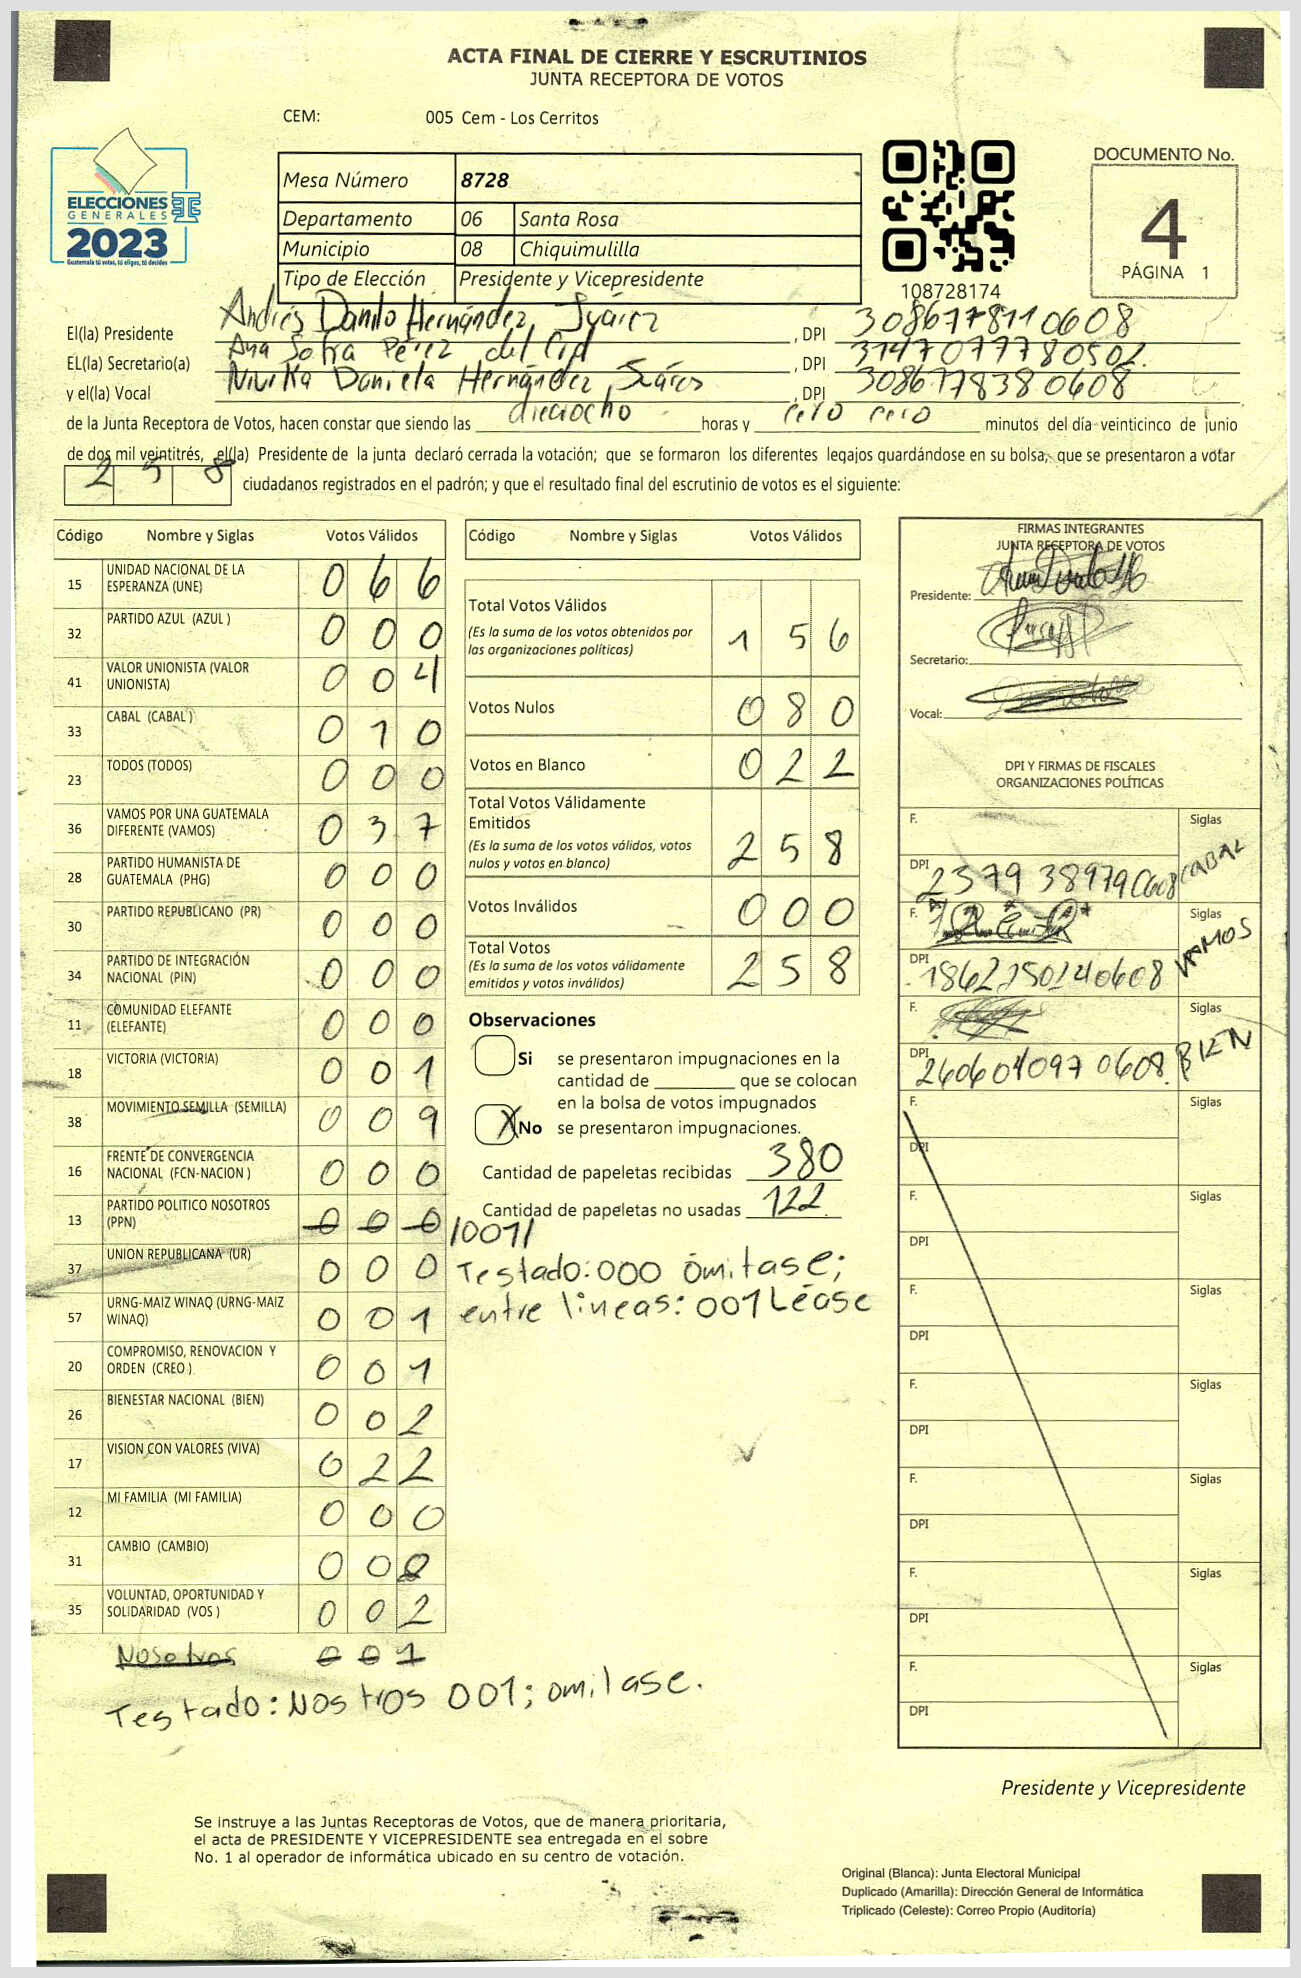 ACTA FINAL DE CIERRE Y ESCRUTINIOS
JUNTA RECEPTORA DE VOTOS
CEM: 005 Cem - Los Cerritos
ELECCIONES
GENERALES
2023
Guatemala tú votas, tú eliges, tú decides
Mesa Número 8728
Departamento 06 Santa Rosa
Municipio 08 Chiquimulilla
Tipo de Elección Presidente y Vicepresidente
108728174
DOCUMENTO No.
4
PÁGINA 1
El(la) Presidente Andrés Danilo Hernández Suárez , DPI 3086778110608
EL(la) Secretario(a) Ana Sofía Pérez del Cid , DPI 3147077780502.
y el(la) Vocal Daniela Hernández Suáres , DPI 3086778380608
de la Junta Receptora de Votos, hacen constar que siendo las dieciocho horas y cero cero minutos del día veinticinco de junio
de dos mil veintitrés, el(la) Presidente de la junta declaró cerrada la votación; que se formaron los diferentes legajos guardándose en su bolsa, que se presentaron a votar
258 ciudadanos registrados en el padrón; y que el resultado final del escrutinio de votos es el siguiente:
Código Nombre y Siglas Votos Válidos
15 UNIDAD NACIONAL DE LA ESPERANZA (UNE) 066
32 PARTIDO AZUL (AZUL ) 000
41 VALOR UNIONISTA (VALOR UNIONISTA) 004
33 CABAL (CABAL ) 010
23 TODOS (TODOS) 000
36 VAMOS POR UNA GUATEMALA DIFERENTE (VAMOS) 037
28 PARTIDO HUMANISTA DE GUATEMALA (PHG) 000
30 PARTIDO REPUBLICANO (PR) 000
34 PARTIDO DE INTEGRACIÓN NACIONAL (PIN) 000
11 COMUNIDAD ELEFANTE (ELEFANTE) 000
18 VICTORIA (VICTORIA) 001
38 MOVIMIENTO SEMILLA (SEMILLA) 009
16 FRENTE DE CONVERGENCIA NACIONAL (FCN-NACION ) 000
13 PARTIDO POLITICO NOSOTROS (PPN) 000 /001/
37 UNION REPUBLICANA (UR) 000
57 URNG-MAIZ WINAQ (URNG-MAIZ WINAQ) 001
20 COMPROMISO, RENOVACION Y ORDEN (CREO ) 001
26 BIENESTAR NACIONAL (BIEN) 002
17 VISION CON VALORES (VIVA) 022
12 MI FAMILIA (MI FAMILIA) 000
31 CAMBIO (CAMBIO) 00
35 VOLUNTAD, OPORTUNIDAD Y SOLIDARIDAD (VOS ) 002
Nosotros 001
Testado: Nostros 001; omitase.
Código Nombre y Siglas Votos Válidos
Total Votos Válidos 156
(Es la suma de los votos obtenidos por
las organizaciones políticas)
Votos Nulos 080
Votos en Blanco 022
Total Votos Válidamente
Emitidos 258
(Es la suma de los votos válidos, votos
nulos y votos en blanco)
Votos Inválidos 000
Total Votos 258
(Es la suma de los votos válidamente
emitidos y votos inválidos)
Observaciones
Si se presentaron impugnaciones en la
cantidad de ________ que se colocan
en la bolsa de votos impugnados
X No se presentaron impugnaciones.
Cantidad de papeletas recibidas 380
Cantidad de papeletas no usadas 122.
Testado: 000 omitase;
entre lineas: 001 Léase
FIRMAS INTEGRANTES
JUNTA RECEPTORA DE VOTOS
Presidente:
Secretario:
Vocal:
DPI Y FIRMAS DE FISCALES
ORGANIZACIONES POLÍTICAS
F. Siglas CABAL
DPI 2379389790608
F. Siglas VAMOS
DPI 1862150140608
F. Siglas BIEN
DPI 2606040970608.
F. Siglas
DPI
F. Siglas
DPI
F. Siglas
DPI
F. Siglas
DPI
F. Siglas
DPI
F. Siglas
DPI
F. Siglas
DPI
Presidente y Vicepresidente
Se instruye a las Juntas Receptoras de Votos, que de manera prioritaria,
el acta de PRESIDENTE Y VICEPRESIDENTE sea entregada en el sobre
No. 1 al operador de informática ubicado en su centro de votación.
Original (Blanca): Junta Electoral Municipal
Duplicado (Amarilla): Dirección General de Informática
Triplicado (Celeste): Correo Propio (Auditoría)